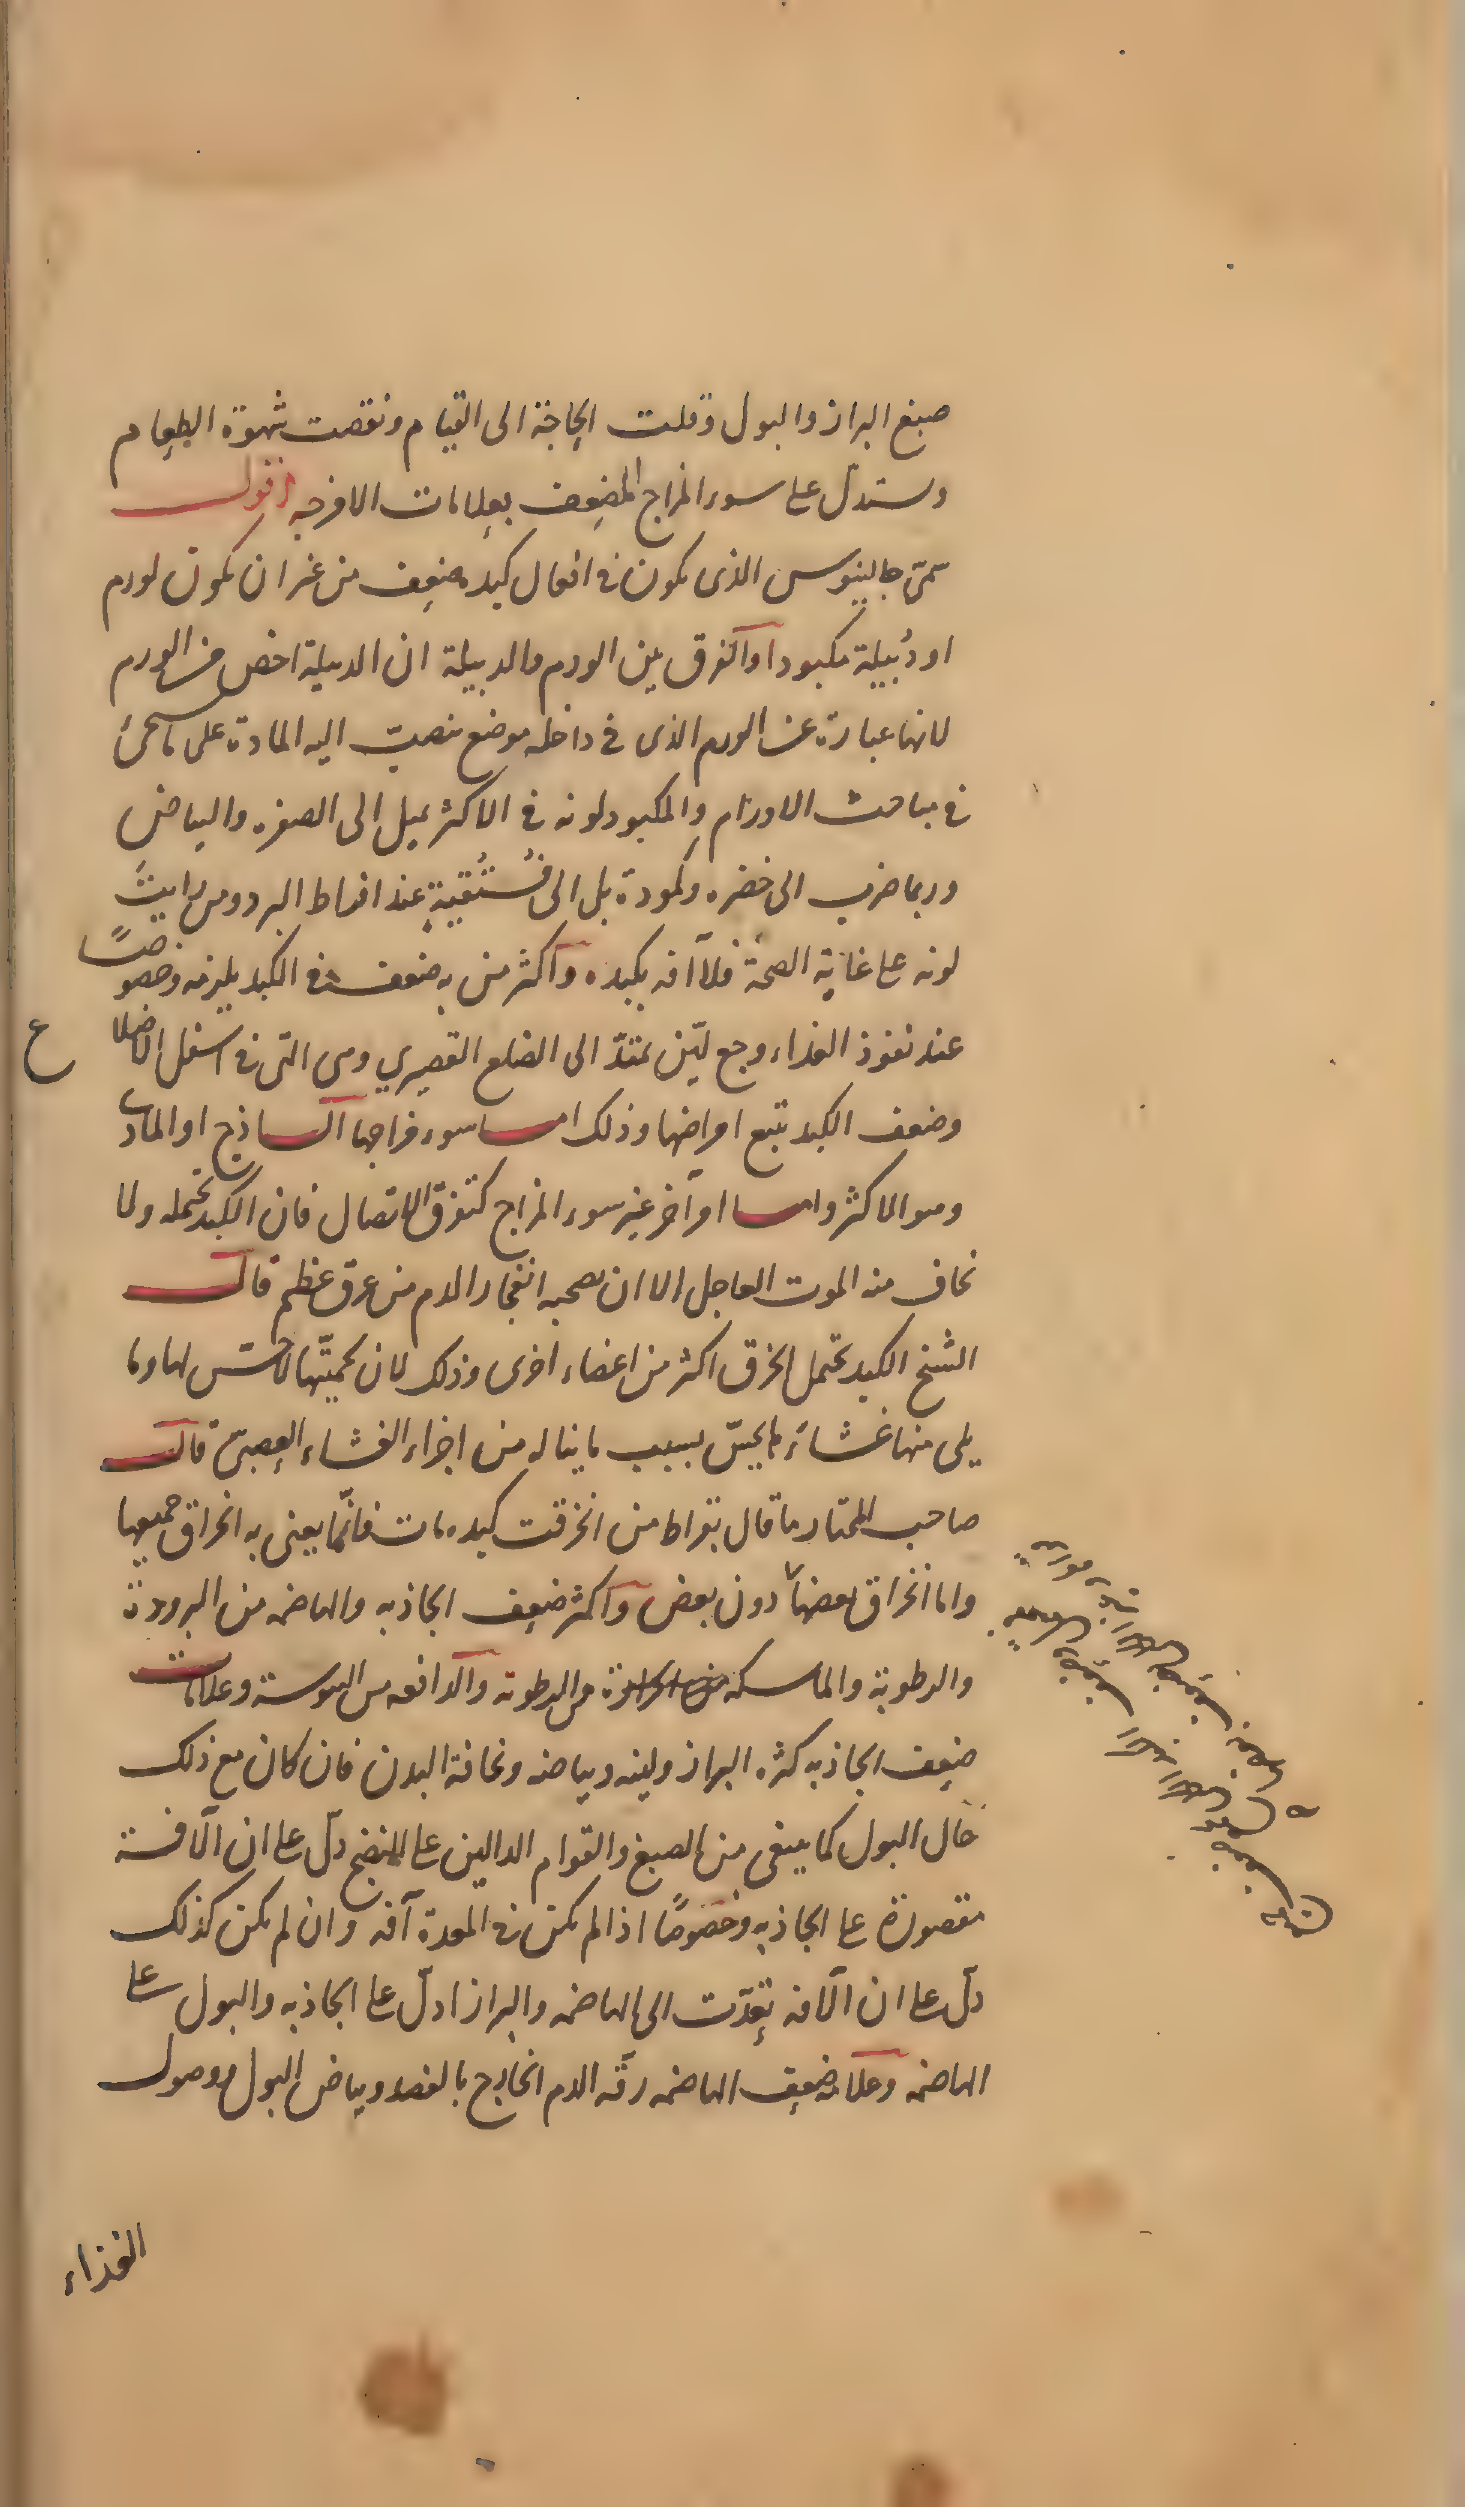 صبغ البراز والبول وقلت الحاجة الى القيام ونقصت شهوة الطعام
وستدل على سوء المزاج المضعف بعلامات الامزجه اقول
سمى جالينوس الذى يكون فى افعال كبده ضعف من غير ان يكون لورم
او دُبيلة مكبودا والفرق بين الورم والدبيلة ان الدبيلة اخص من الورم
لانها عبارة عن الورم الذى فى داخله موضع تنصبّ اليه المادة على ما سيجئ
فى مباحث الاورام والمكبود لونه فى الاكثر يميل الى الصفره والبياض
وربما ضرب الى خضره وكمودة بل الى فُستُقيةٍ عند افراط البرد ومن رايتَ
لونه على غاية الصحة فلا آفه بكبده واكثر من به ضعف فى الكبد يلزمه وخصوصًا
عند نفوذ الغذاء وجع ليّن يمتدّ الى الضلع القصيري وهى التى فى اسفل الاضلاع
وضعف الكبد تتبع امراضها وذلك اما سوء مزاجها الساذج او المادى
وهو الاكثر واما امر آخر غير سوء المزاج كتفرق الاتصال فان الكبد تحتمله ولا
يخاف منه الموت العاجل الا ان يصحبه انفجار الدم من عرق عظيم قال
الشيخ الكبد تحتمل الخرق اكثر من اعضاء اخرى وذلك لان لحميتّها لا حسّ لها وما
يلى منها غشاءً ما يحسّ بسبب ما يناله من اجزاء الغشاء العصبىّ قال
صاحب المختار ما قال بقراط من انخرقت كبده مات فانّما يعنى به انخراق جميعها
واما انخراق بعضها دون بعض واكثر ضعف الجاذبه والهاضمه من البرودة
والرطوبة والماسكه من الرطوبة والدافعه من اليبوسة وعلامات
ضعف الجاذبه كثره البراز ولينه وبياضه ونحافة البدن فان كان مع ذلك
حال البول كما ينبغى من الصبغ والقوام الدالين على النضج دلّ على ان الآفة
مقصورة على الجاذبه وخصوصًا اذا لم يكن فى المعدة آفه وان لم يكن كذلك
دلّ على ان الآفه تعدّت الى الهاضمه والبراز ادلّ على الجاذبه والبول على
الهاضمه وعلامة ضعف الهاضمه رقّه الدم الخارج بالفصد وبياض البول ووصول
الغذاء